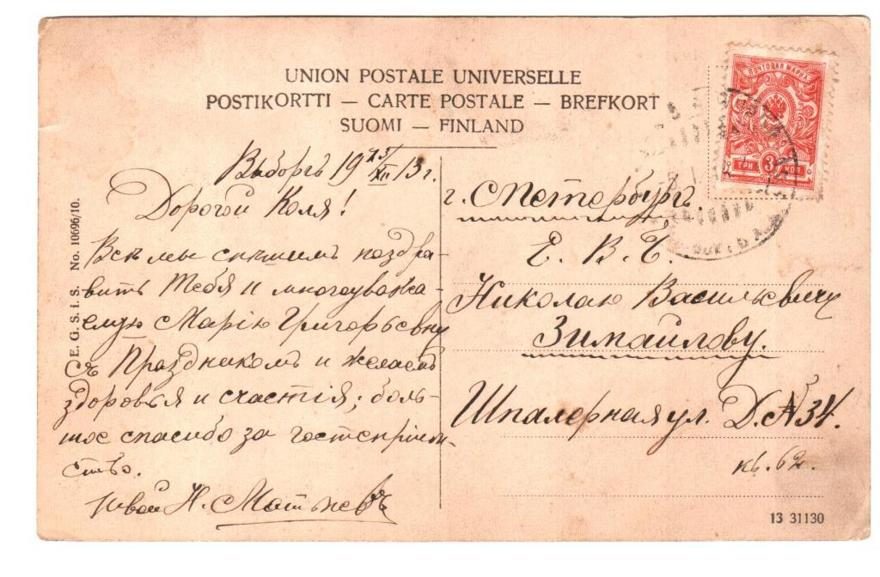 UNION POSTALE UNIVERSELLE
POSTIKORTTI — CARTE POSTALE — BREFKORT
SUOMI — FINLAND
Выборгъ 19 25/XII 13 г.
Дорогой Коля!
Всѣ мы спѣшимъ поздра-
вить Тебя и многоуважа-
емую Марію Григорьевну
съ Праздникомъ и желаемъ
здоровья и счастія; боль-
шое спасибо за гостепріим-
ство.
твой Н.
г. СПетербургъ
Е. В. Б.
Николаю Васильевичу
Зимайлову.
Шпалерная ул. Д. № 34.
кв. 62.
E. G. S. i. S. No. 10696/10.
13 31130
ПОЧТОВАЯ МАРКА
ТРИ 3 КОП